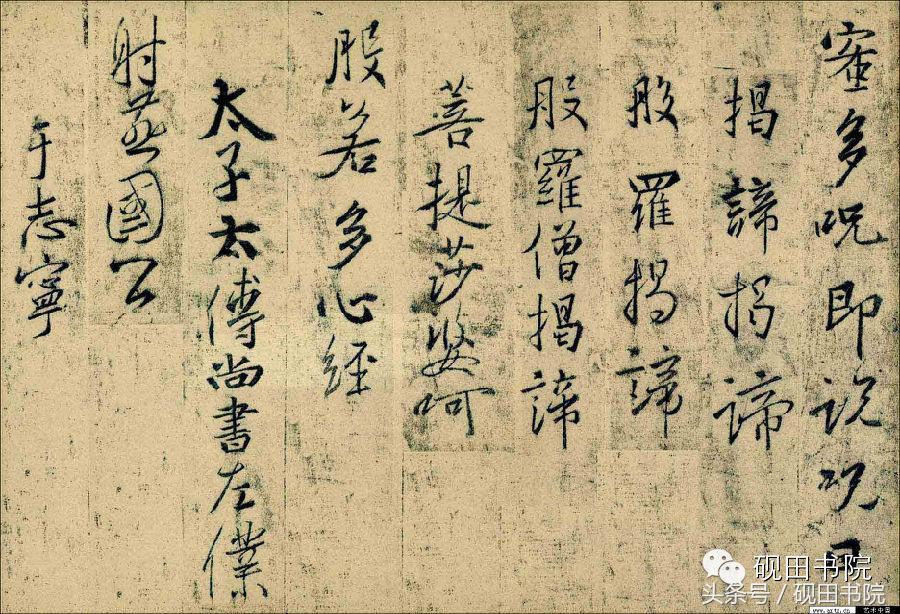 蜜多呪即說呪曰
揭諦揭諦
般羅揭諦
般羅僧揭諦
菩提莎婆呵
般若多心經
太子太傅尚書左僕
射燕國公
于志寧
砚田书院
头条号／砚田书院
www.artx.cn 艺术中国